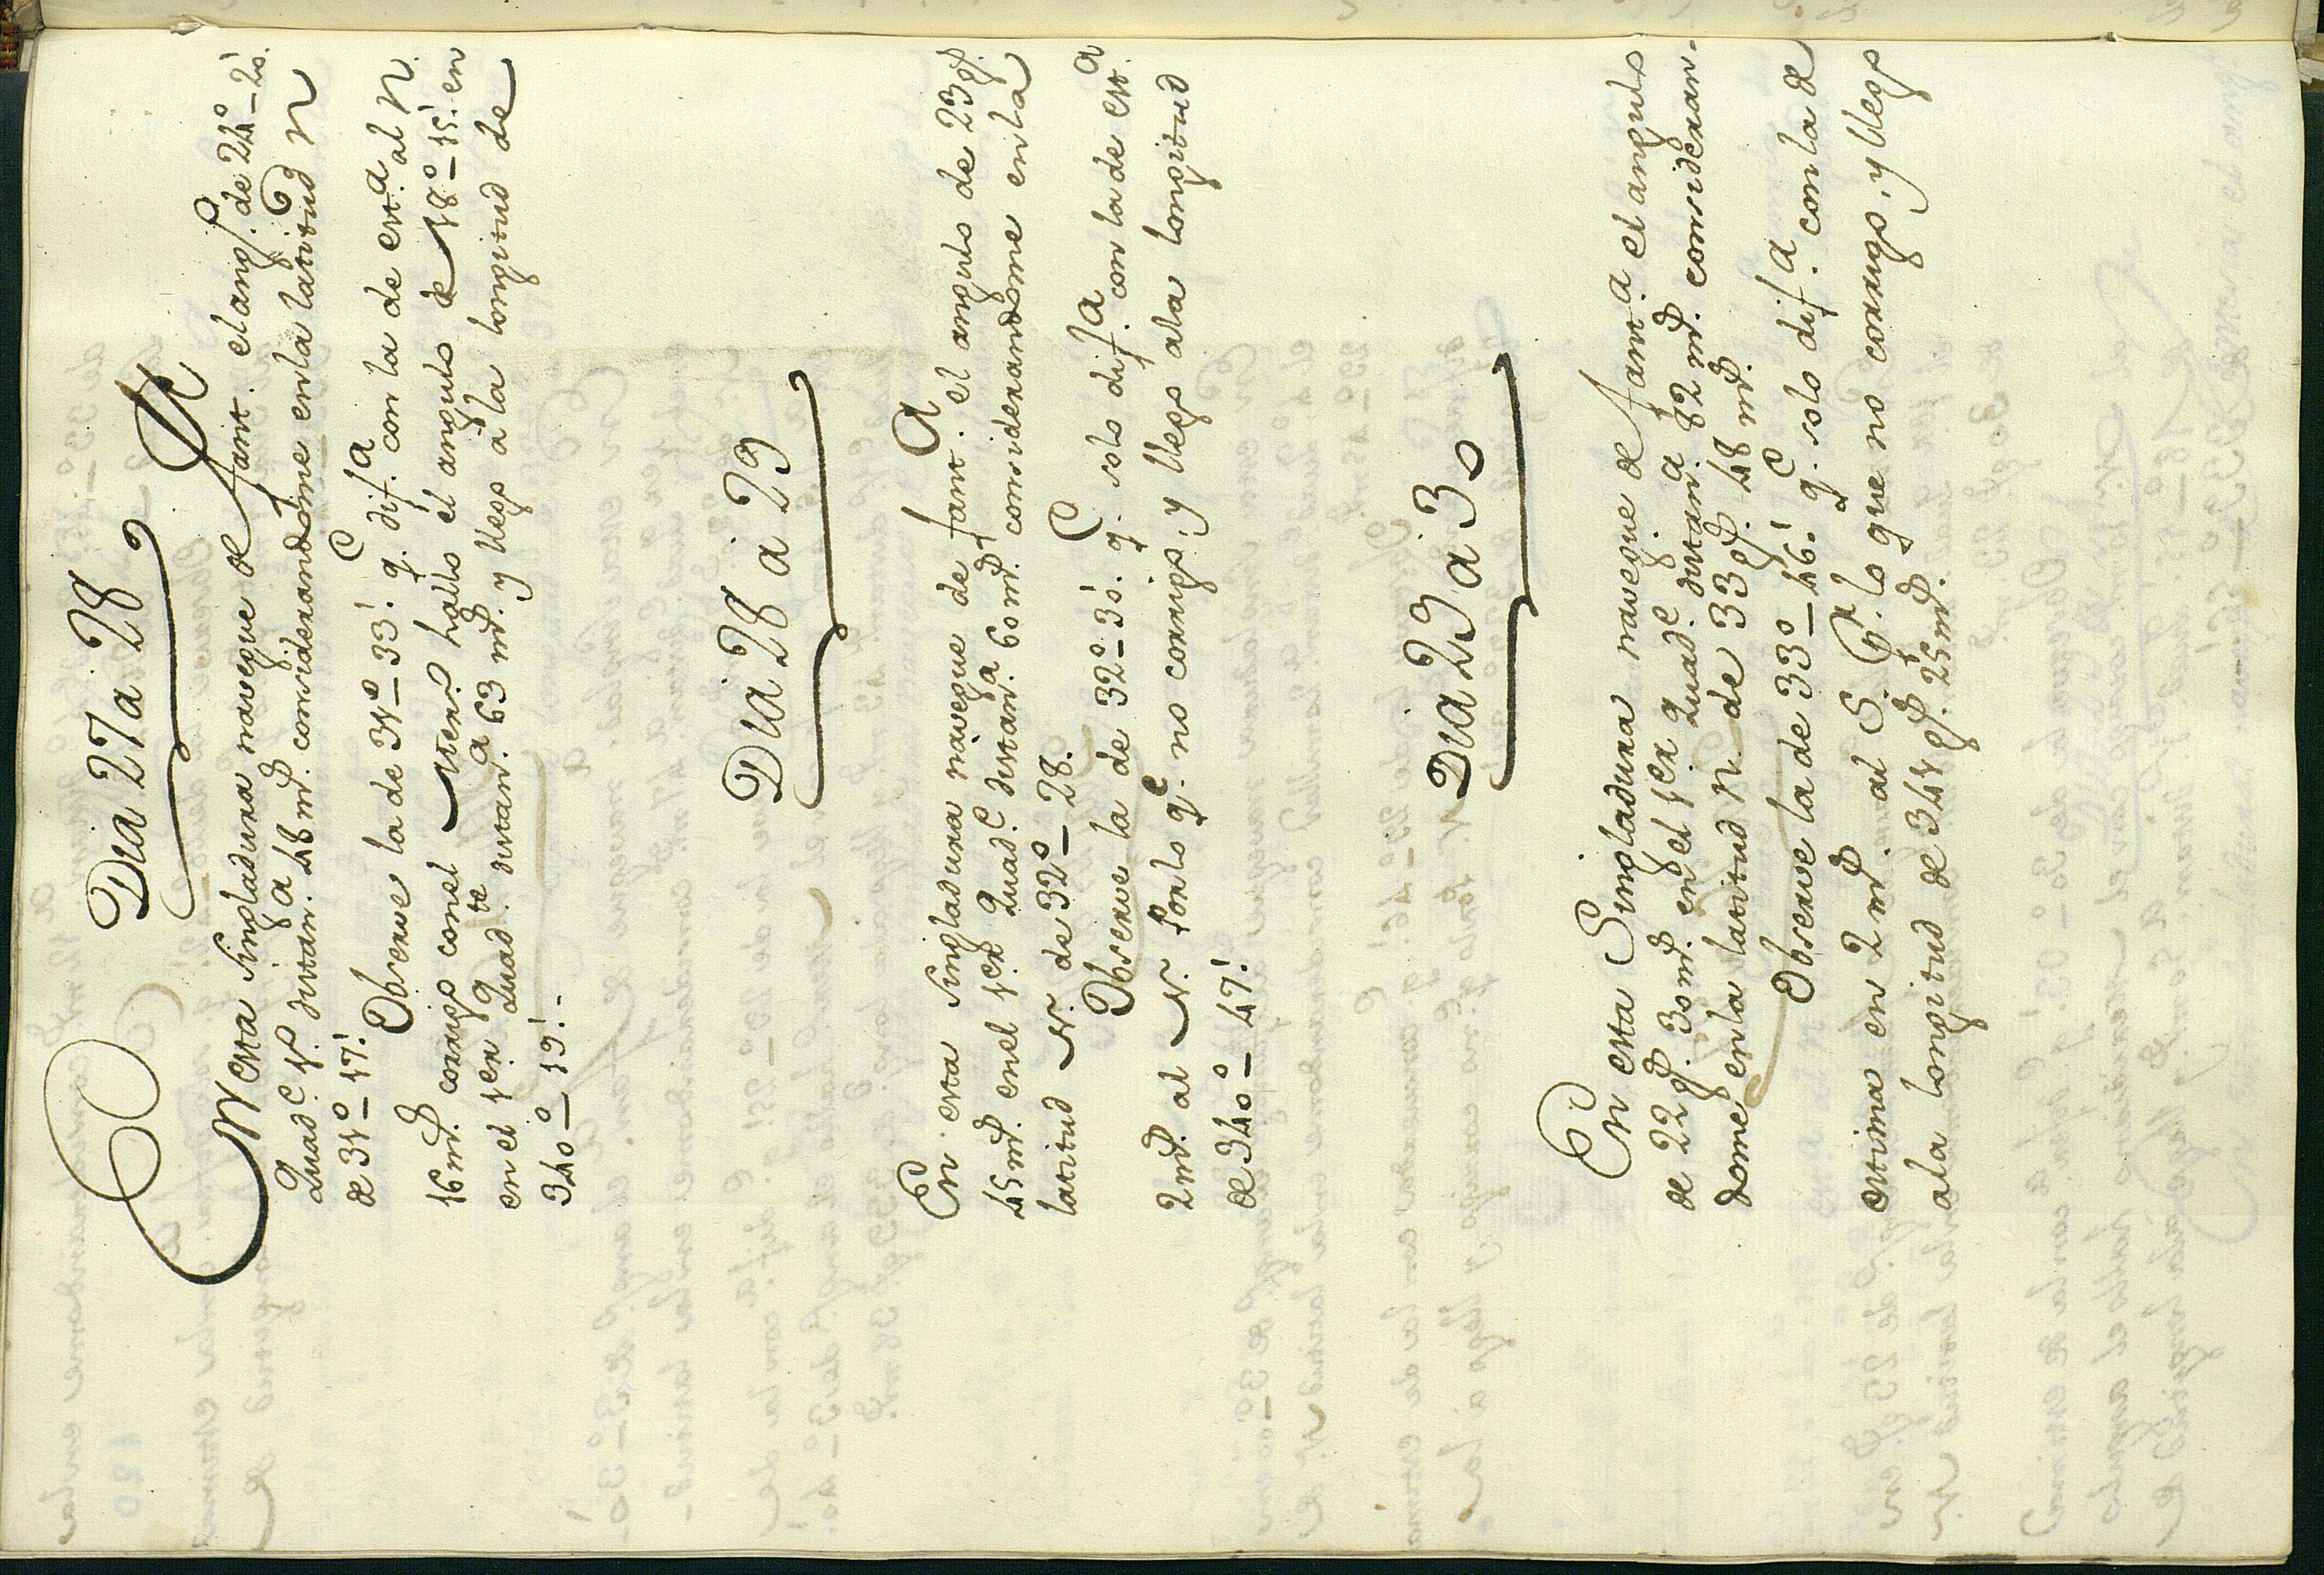 Dia 27 a 28
En esta singladura navegue de fant.a el ang.o de 24°_20'
Quad.e 1.o distan.a 48 ms. considerandome en la latitud N
de 31°_17'.
Observe la de 31°_33'. q.e dif.a con la de est.a al N.
16 ms. corrigo con el hallo el angulo de 18°_15'. en
en el 1.er Quad.te distan.a 63 ms. y llego à la longitud de
340°_19'.
Dia 28 a 29
En esta singladura navegue de fant.a el angulo de 23 gs.
45 ms. en el 1.er Quad.e distan.a 60 ms. considerandome en la
latitud N. de 32°_28.
Observe la de 32°_30'. q.e solo dif.a con la de est.a
2 ms. al N. Por lo q.e no corrigo, y llego a la longitud
de 340°_47'.
Dia 29 a 30
En esta Singladura navegue de fant.a el angulo
de 22 gs. 30 ms. en el 1.er Quad.e distan.a 82 ms. consideran-
dome en la latitud N. de 33 gs. 48 ms.
Observe la de 33°_46'. q.e solo dif.a con la de
estima en 2 ms. al S. Pr. lo que no corrigo, y llego
a la longitud de 341 gs. 25 ms.